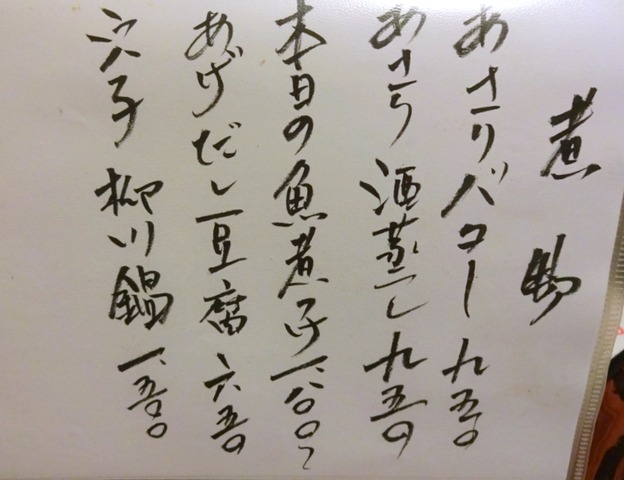 煮物
あさりバター 九五〇
あさり 酒蒸し 九五〇
本日の魚煮 一、八〇〇〜
あげだし豆腐 六五〇
穴子 柳川鍋 一、五〇〇